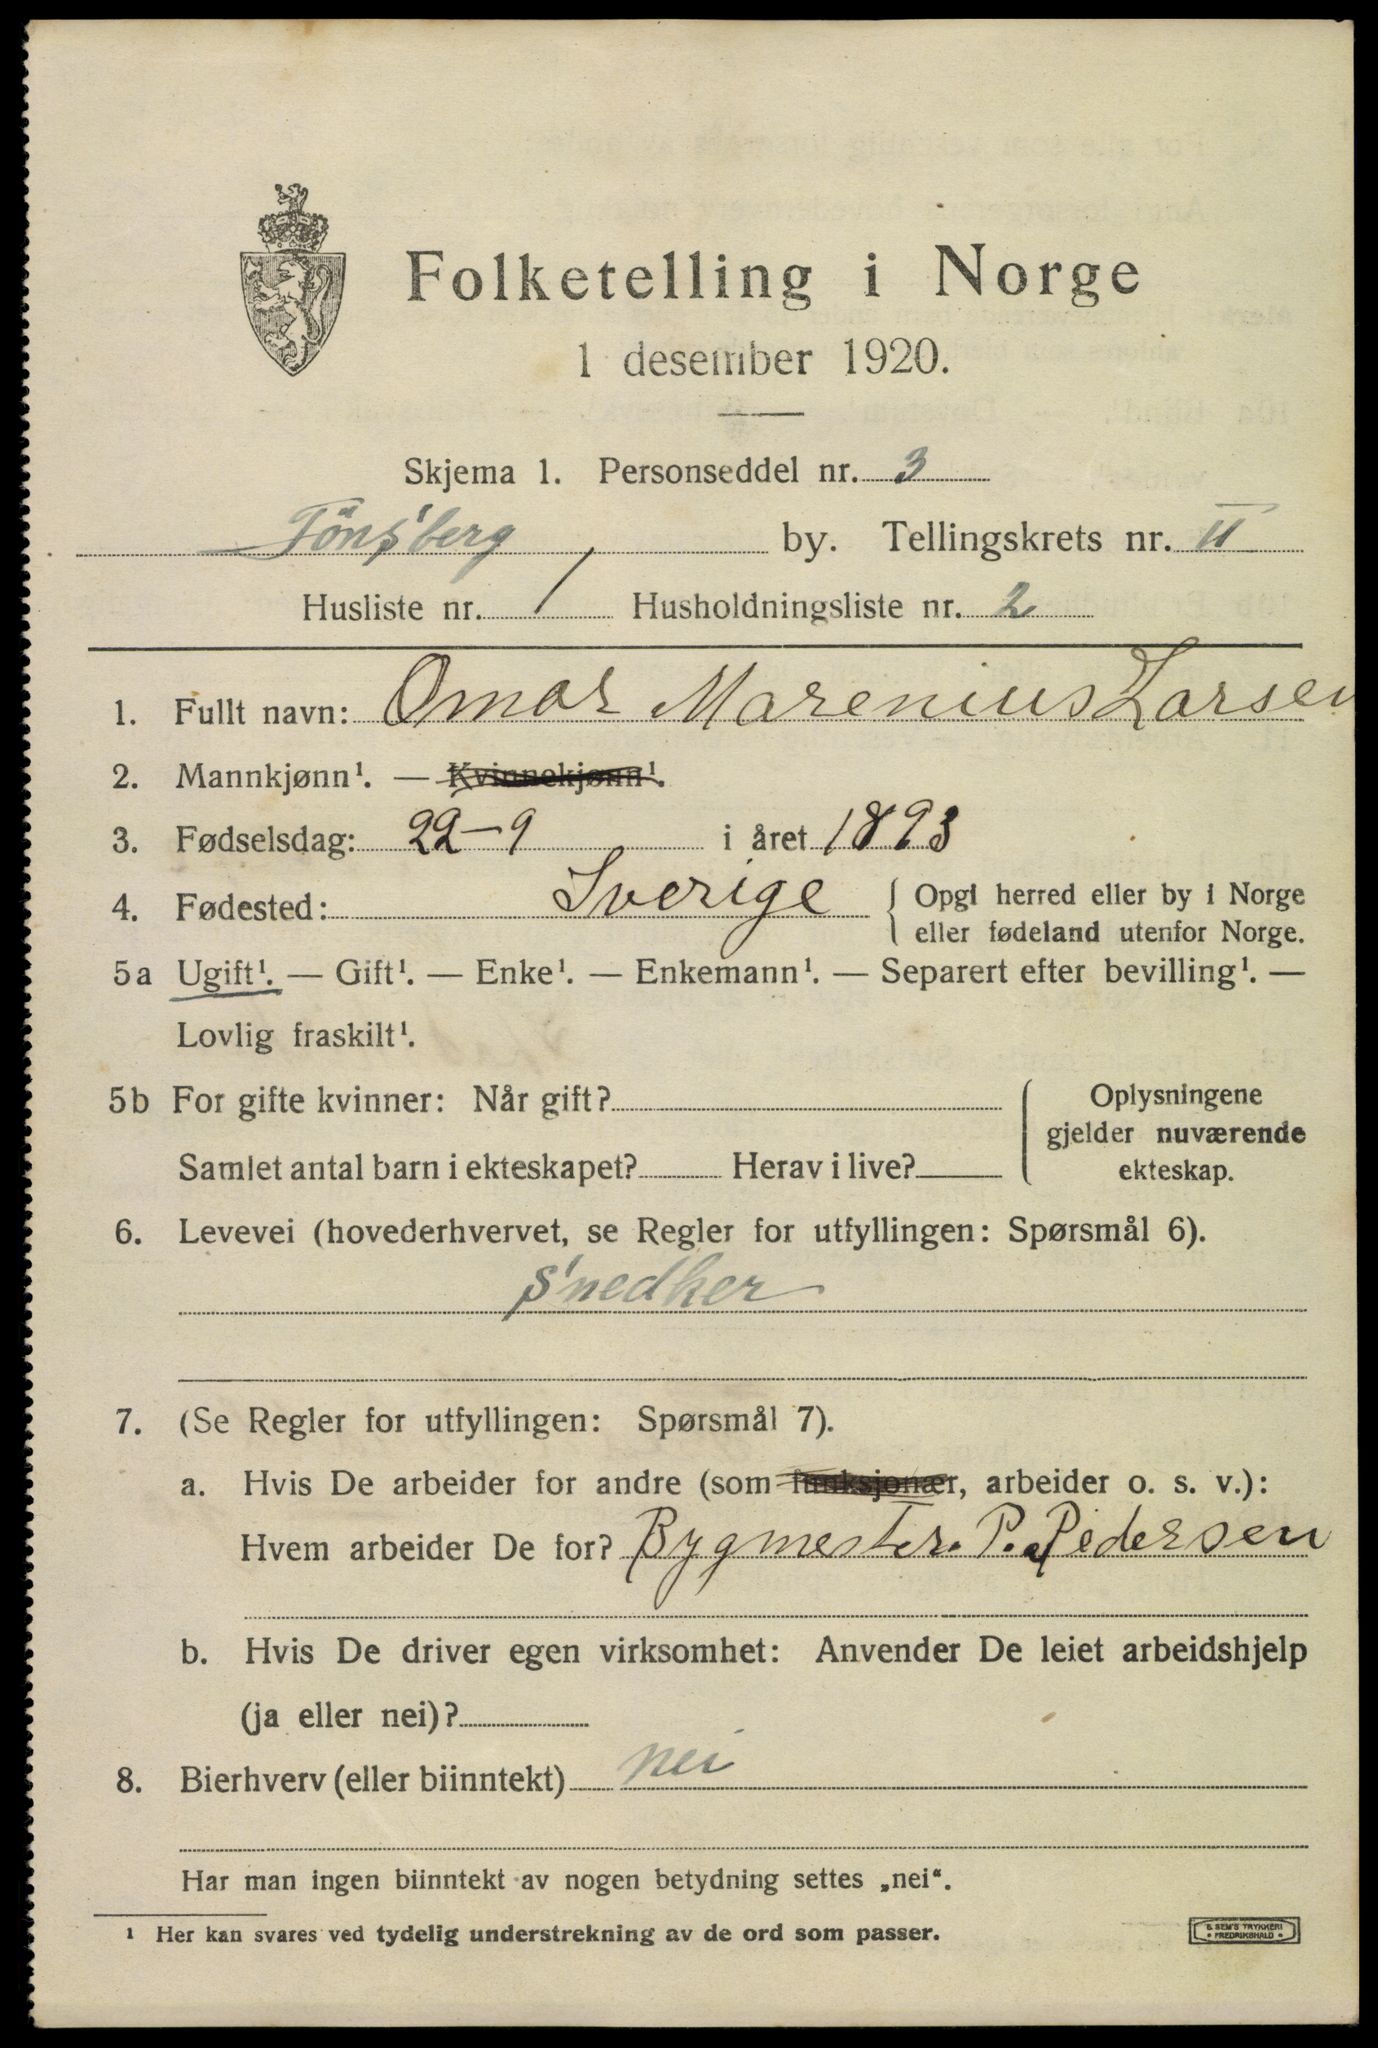 Folketelling i Norge
1 desember 1920.
Skjema 1. Personseddel nr. 3
Tönsberg by. Tellingskrets nr. II
Husliste nr. 1 Husholdningsliste nr. 2
1. Fullt navn: Omar Marenius Larsen
2. Mannkjønn¹. — Kvinnekjønn¹.
3. Fødselsdag: 22-9 i året 1893
4. Fødested: Sverige { Opgi herred eller by i Norge
eller fødeland utenfor Norge.
5a Ugift¹. — Gift¹. — Enke¹. — Enkemann¹. — Separert efter bevilling¹. —
Lovlig fraskilt¹.
5b For gifte kvinner: Når gift?
Samlet antal barn i ekteskapet? Herav i live?
Oplysningene
gjelder nuværende
ekteskap.
6. Levevei (hovederhvervet, se Regler for utfyllingen: Spørsmål 6).
Snedker
7. (Se Regler for utfyllingen: Spørsmål 7).
a. Hvis De arbeider for andre (som funksjonær, arbeider o. s. v.):
Hvem arbeider De for? Bygmester. P. Pedersen
b. Hvis De driver egen virksomhet: Anvender De leiet arbeidshjelp
(ja eller nei)?
8. Bierhverv (eller biinntekt) nei
Har man ingen biinntekt av nogen betydning settes „nei“.
¹ Her kan svares ved tydelig understrekning av de ord som passer.
E. SEM'S TRYKKERI
FREDRIKSHALD